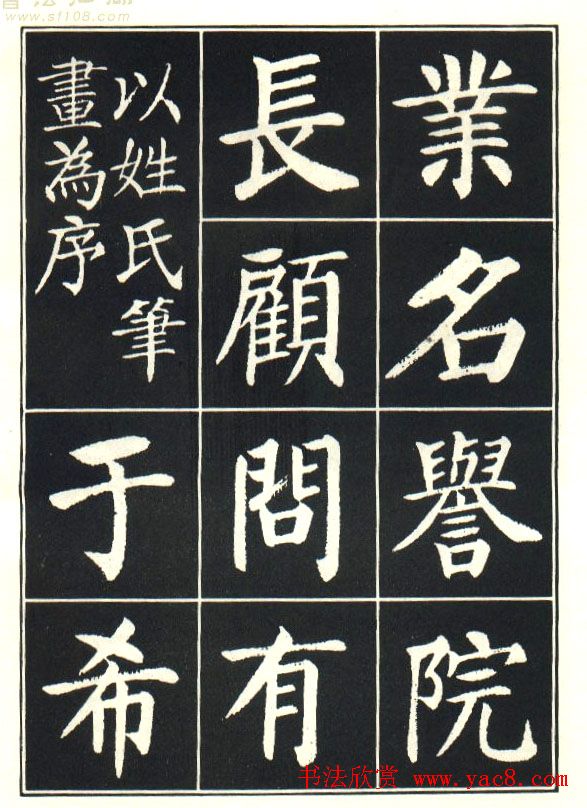 www.sf108.com
業名譽院
長顧問有
以姓氏筆
畫為序
于希
书法欣赏 www.yac8.com